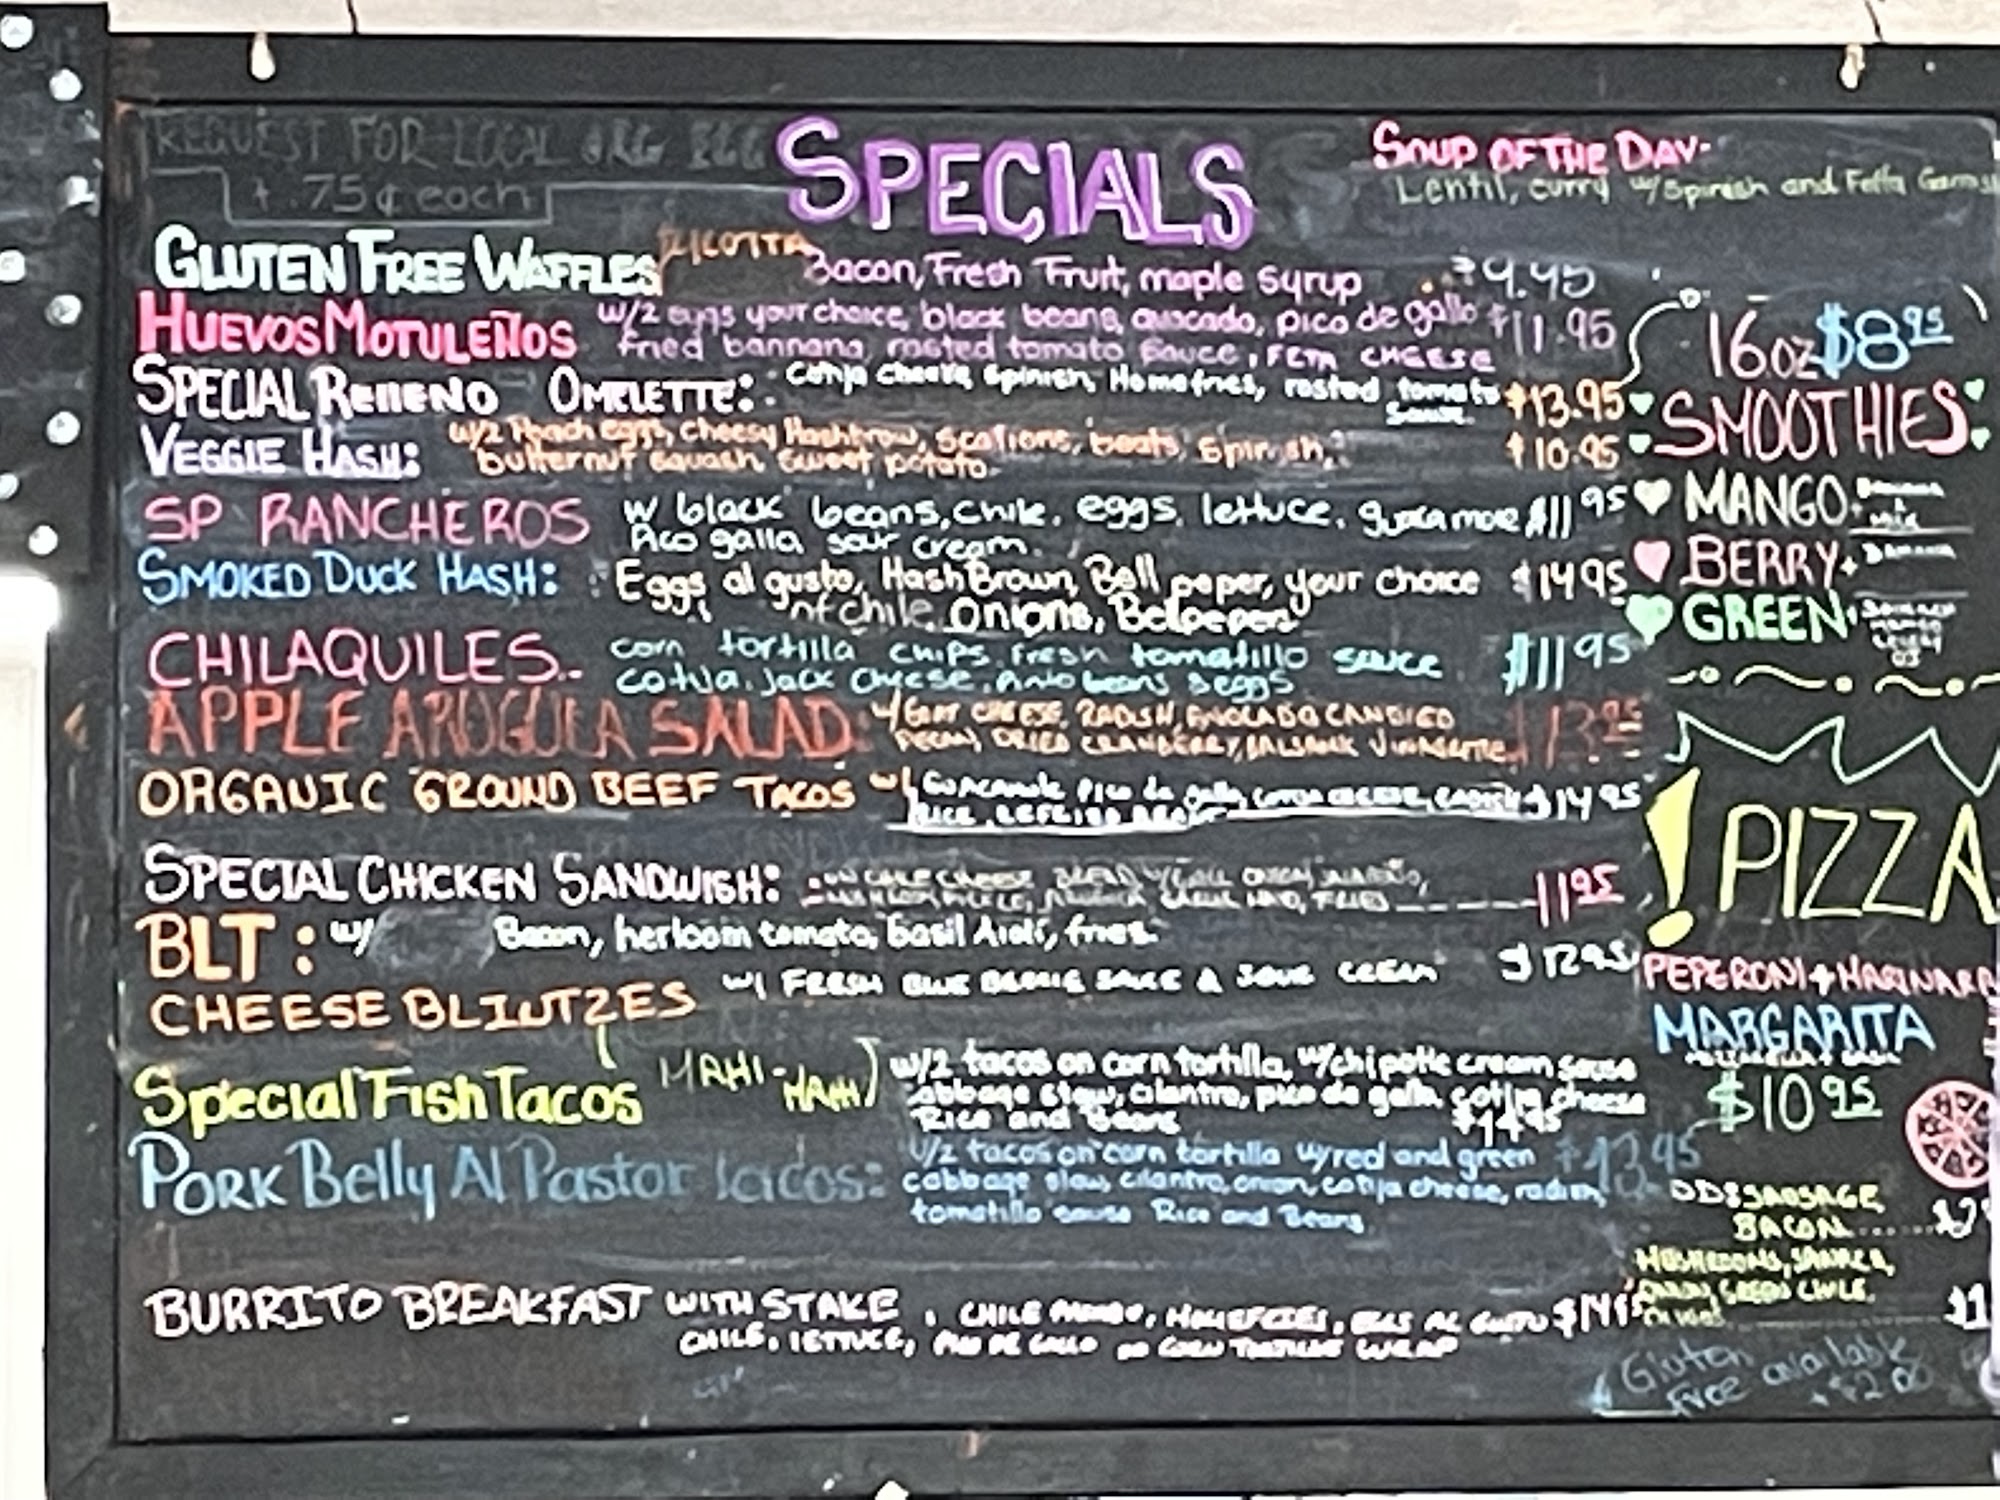 REQUEST FOR LOCAL ORG EGG
+ .75¢ each
SPECIALS
SOUP OF THE DAY:
Lentil, curry w/Spinish and Fetta
GLUTEN FREE WAFFLES RICOTTA Bacon, Fresh Fruit, maple syrup $9.45
HUEVOS MOTULEÑOS w/2 eggs your choice, black beans, avocado, pico de gallo $11.95
fried bannana, rosted tomato sauce, FETA CHEESE
SPECIAL RELLENO OMELETTE: Cotija cheese, Spinish, Homefries, rosted tomato $13.95
sauce
VEGGIE HASH: w/2 Poach eggs, cheesy Hashbrow, Scallions, beats, Spinish, $10.95
butternut squash, sweet potato.
SP RANCHEROS w black beans, chile, eggs, lettuce, guacamore $11.95
Pico gallo, sour cream.
SMOKED DUCK HASH: Eggs al gusto, HashBrown, Bell peper, your choice $14.95
of chile, Onions, Belpepers
CHILAQUILES.. corn tortilla chips, fresh tomatillo sauce $11.95
cotija, jack cheese, beans & eggs
APPLE ARUGULA SALAD: w/ GOAT CHEESE, RADISH, AVOCADO CANDIED $13.95
PECAN, DRIED CRANBERRY, BALSAMIC
ORGANIC GROUND BEEF TACOS w/ Pico de gallo, COTIJA CHEESE, $14.95
RICE,
SPECIAL CHICKEN SANDWISH: CHEESE 11.95
FRIES
BLT: w/ Bacon, herloom tomato, basil Aioli, fries. $12.95
CHEESE BLINTZES w/ FRESH BLUE SAUCE & SOUR CREAM
Special Fish Tacos MAHI-MAHI) w/2 tacos on corn tortilla, w/chipotle cream sause
cabbage slaw, cilantro, pico de gallo, cotija cheese
Rice and Beans $14.95
PORK Belly Al Pastor tacos: w/2 tacos on corn tortilla w/red and green $13.95
cabbage slaw, cilantro, onion, cotija cheese, radish,
tomatillo sause Rice and Beans
BURRITO BREAKFAST WITH STAKE, CHILE HOMEFRIES, EGGS AL GUSTO $14.95
CHILE, LETTUCE, PICO DE GALLO CORN TORTILLAS WRAP
16oz $8.95
SMOOTHIES
MANGO
BERRY +
GREEN
! PIZZA
PEPERONI + MARINARA
MARGARITA
$10.95
ADD SAUSAGE
BACON
MUSHROOMS,
ONION, GREEN CHILE
Gluten
Free available
+ $2.00